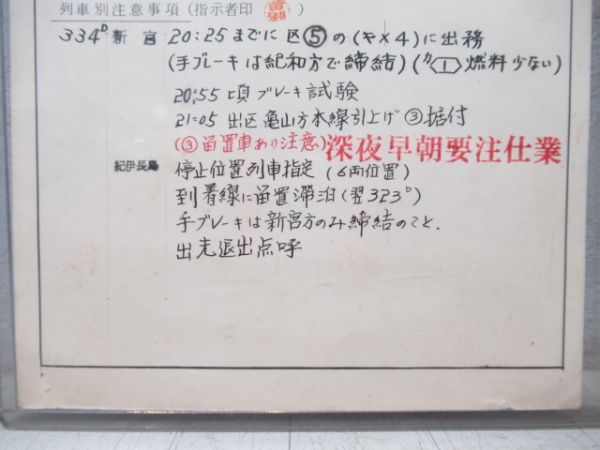 列車別注意事項(指示者印 )
334D 新宮 20:25までに区⑤の(キ×4)に出務
(手ブレーキは紀和方で締結)(カ〈1〉燃料少ない)
20:55頃ブレーキ試験
21:05 出区亀山方本線引上げ③据付
(③留置車あり注意) 深夜早朝要注仕業
紀伊長島 停止位置列車指定(6両位置)
到着線に留置滞泊(翌323D)
手ブレーキは新宮方のみ締結のこと.
出先退出点呼